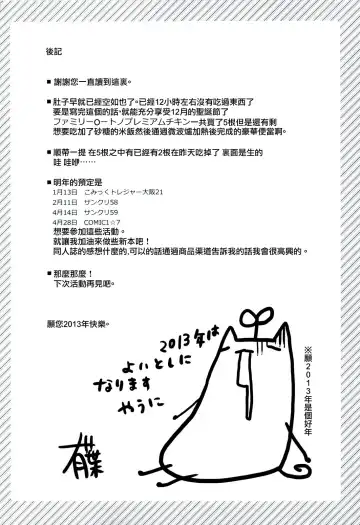 後記
■ 謝謝您一直讀到這裏。
■ 肚子早就已經空如也了。已經12小時左右沒有吃過東西了
要是寫完這個的話，就能充分享受12月的聖誕節了
ファミリーO－トノプレミアムチキン一共買了5根但是還有剩
想要吃加了砂糖的米飯然後通過微波爐加熱後完成的豪華便當啊。
■ 順帶一提 在5根之中有已經有2根在昨天吃掉了 裏面是生的
哇 哇咿……
■ 明年的預定是
1月13日 こみっくトレジャー大阪21
2月11日 サンクリ58
4月14日 サンクリ59
4月28日 COMIC1☆7
想要參加這些活動。
就讓我加油來做些新本吧！
同人誌的感想什麼的，可以的話通過商品渠道告訴我的話我會很高興的。
■ 那麼那麼！
下次活動再見吧。
願您2013年快樂。
2013年は
よいとしに
なります
やうに
有葉
※願2013年是個好年